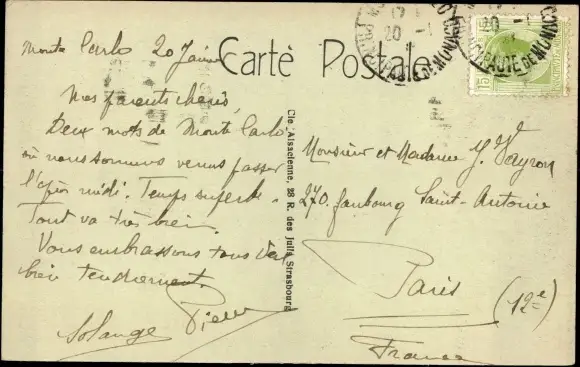 Carte Postale
Monte Carlo 20 Janvier
Mes parents chéris,
Deux mots de Monte Carlo
où nous sommes venus passer
l'après midi. Temps superbe.
Tout va très bien.
Vous embrassons tous deux
bien tendrement.
Solange Pierre
Cie Alsacienne, 28 R. des Juifs Strasbourg
Monsieur et Madame J. Vayron
270 faubourg Saint-Antoine
Paris (12e)
France
20 -1
PRINCIPAUTÉ DE MONACO
20 -1
PRINCIPAUTÉ DE MONACO
15